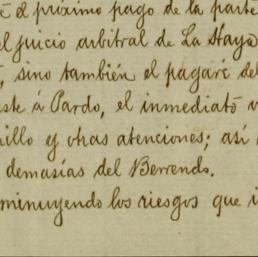 é el próximo pago de la parte
el juicio arbitral de La Haya
, sino también el pagaré del
este á Pardo, el inmediato v
illo y otras atenciones; así
demasías del Berrendo.
minuyendo los riesgos que i